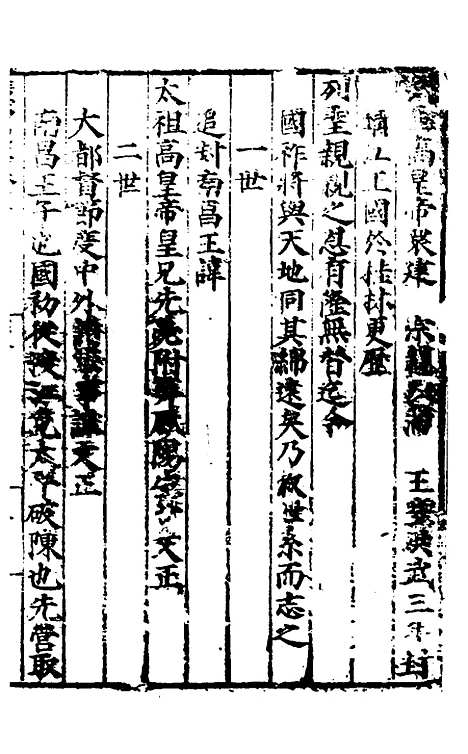 高皇帝眾建 宗藩 王 洪武三年封
靖江王國於桂林更歷
列聖親親之恩有隆無替迄今
國祚將與天地同其綿遠矣乃敘世系而志之
一世
追封南昌王諱
太祖高皇帝皇兄先薨附葬鳳陽 文正
二世
大都督節度中外諸軍事諱文正
南昌王子也國初從渡江克太平破陳也先營取